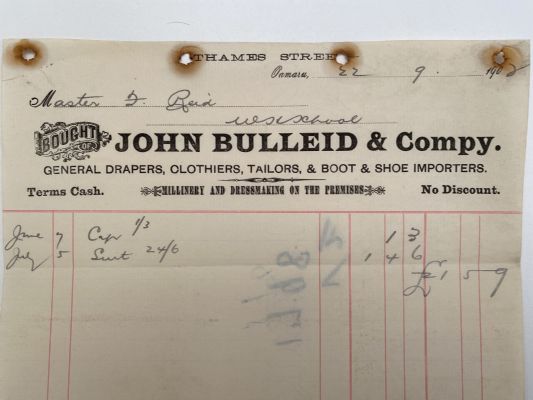 THAMES STREE
Oamaru, 22 . 9 . 190
Master Reid
BOUGHT OF
JOHN BULLEID & Compy.
GENERAL DRAPERS, CLOTHIERS, TAILORS, & BOOT & SHOE IMPORTERS.
Terms Cash. MILLINERY AND DRESSMAKING ON THE PREMISES No Discount.
June 7 Cap 1/3 1 3
July 5 Suit 24/6 1 4 6
£1 5 9